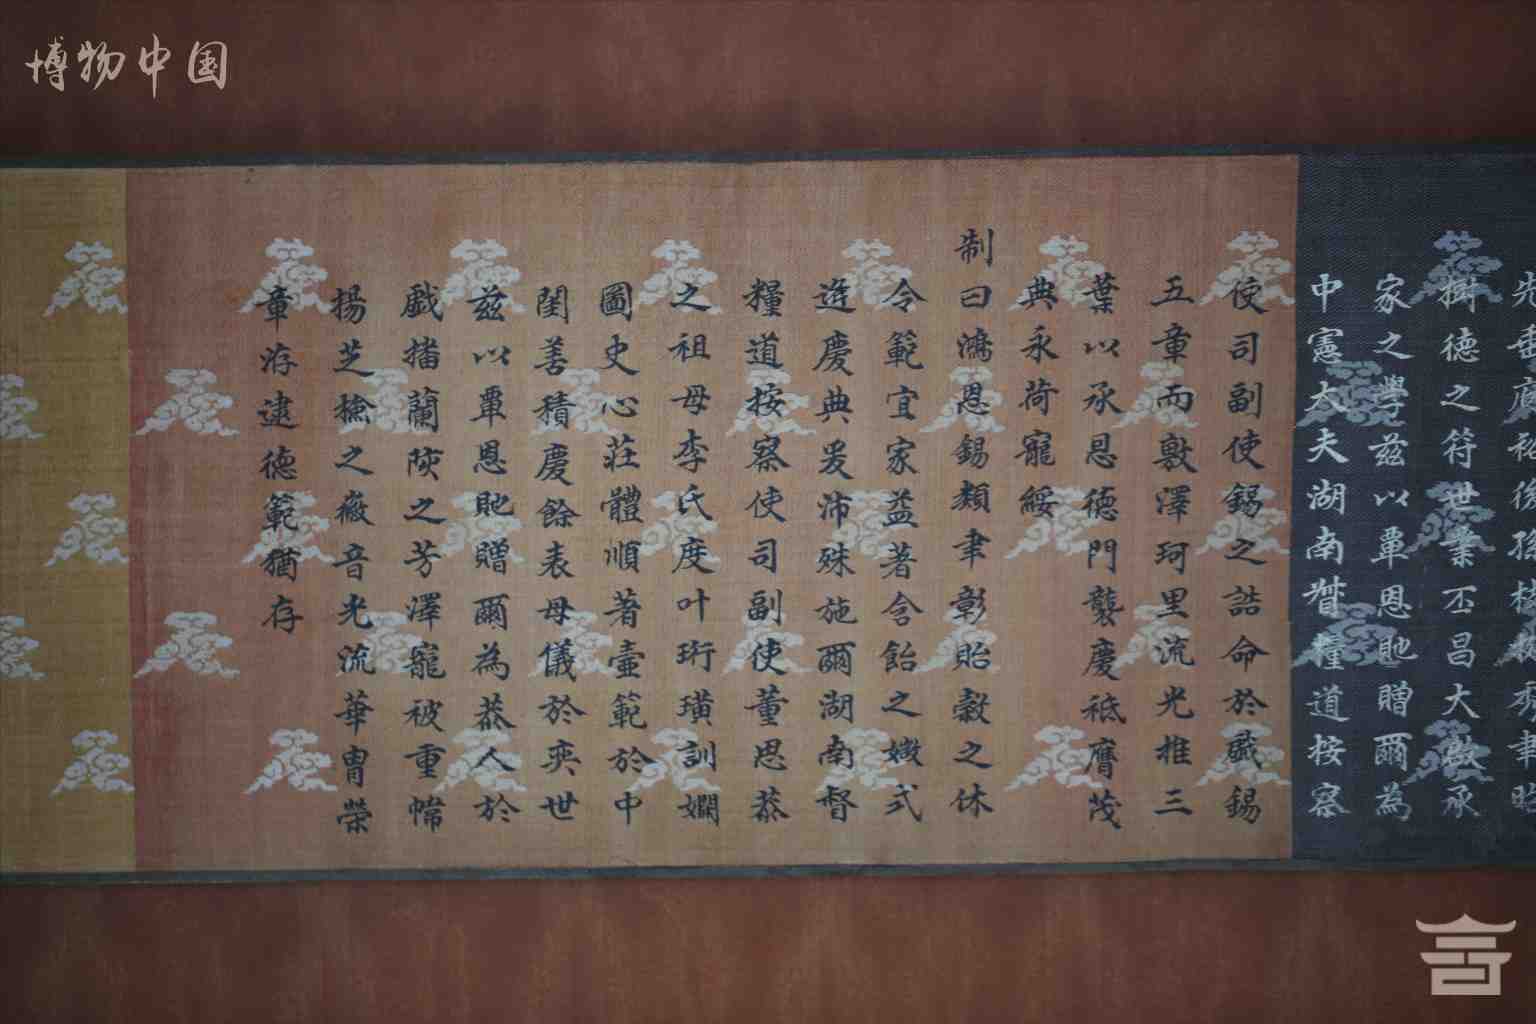 博物中国
樹德之符世業丕昌大啟承
家之學茲以覃恩貤贈爾為
中憲大夫湖南督糧道按察
使司副使錫之誥命於戲錫
五章而敷澤珂里流光推三
葉以承恩德門襲慶祗膺茂
典永荷寵綏
制曰鴻恩錫類聿彰貽穀之休
令範宜家益著含飴之媺式
遊慶典爰沛殊施爾湖南督
糧道按察使司副使董思恭
之祖母李氏度叶珩璜訓嫻
圖史心莊體順著壼範於中
閨善積慶餘表母儀於奕世
茲以覃恩貤贈爾為恭人於
戲播蘭陔之芳澤寵被重幃
揚芝檢之徽音光流華胄榮
章洊逮德範猶存